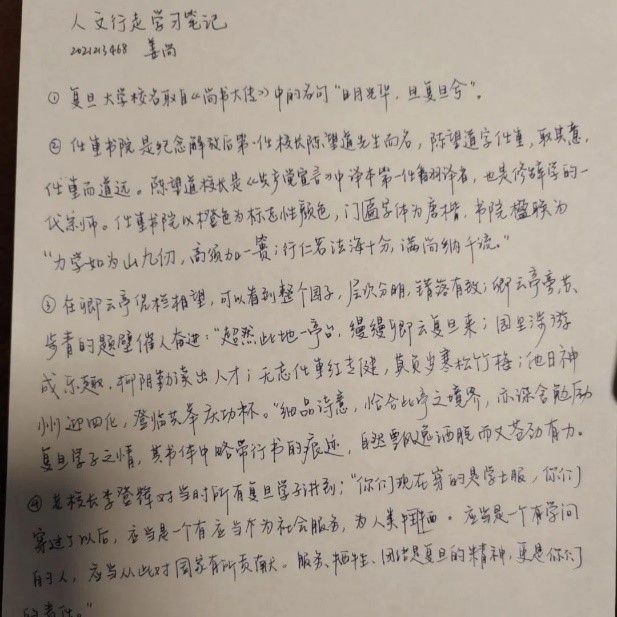 人文行走学习笔记
2021213468 姜尚
① 复旦大学校名取自《尚书大传》中的名句"日月光华，旦复旦兮"。
② 任重书院是纪念解放后第一任校长陈望道先生而名，陈望道字任重，取其意，
任重而道远。陈望道校长是《共产党宣言》中译本第一任翻译者，也是修辞学的一
代宗师。任重书院以橙色为标志性颜色，门匾字体为唐楷，书院楹联为
"力学如为山九仞，高须加一篑；行仁若法海十分，满尚纳千流。"
③ 在卿云亭凭栏相望，可以看到整个园子，层次分明，错落有致；卿云亭旁苏
步青的题壁催人奋进："超然此地一亭台，缦缦卿云复旦来；园呈涉游
成乐趣，柳阴勤读出人才；无志任重行专健，真负岁寒松竹梅；他日神
州迎四化，登临共举庆功杯。"细品诗意，恰合此亭之境界，亦深含勉励
复旦学子之情，其书体中略带行书的痕迹，自然飘逸洒脱而又苍劲有力。
④ 老校长李登辉对当时所有复旦学子讲到："你们现在穿的是学士服，你们
穿过了以后，应当是一个有应当作为社会服务，为人类牺牲。应当是一个有学问
的人，应当从此对国家有所贡献。服务、牺牲、团结是复旦的精神，更是你们
的责任。"